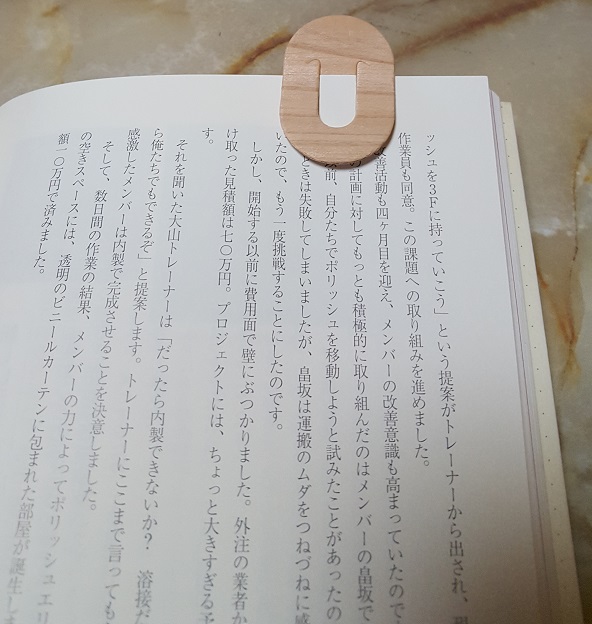 ッシュを3Fに持っていこう」という提案がトレーナーから出され、
作業員も同意。この課題への取り組みを進めました。
改善活動も四ヶ月目を迎え、メンバーの改善意識も高まっていたので
の計画に対してもっとも積極的に取り組んだのはメンバーの畠坂で
前、自分たちでポリッシュを移動しようと試みたことがあったの
ときは失敗してしまいましたが、畠坂は運搬のムダをつねづねに感
いたので、もう一度挑戦することにしたのです。
しかし、開始する以前に費用面で壁にぶつかりました。外注の業者か
け取った見積額は七〇万円。プロジェクトには、ちょっと大きすぎる予
す。
それを聞いた大山トレーナーは「だったら内製できないか？　溶接だ
ら俺たちでもできるぞ」と提案します。トレーナーにここまで言っても
感激したメンバーは内製で完成させることを決意しました。
そして、数日間の作業の結果、メンバーの力によってポリッシュエリ
の空きスペースには、透明のビニールカーテンに包まれた部屋が誕生しま
額一〇万円で済みました。